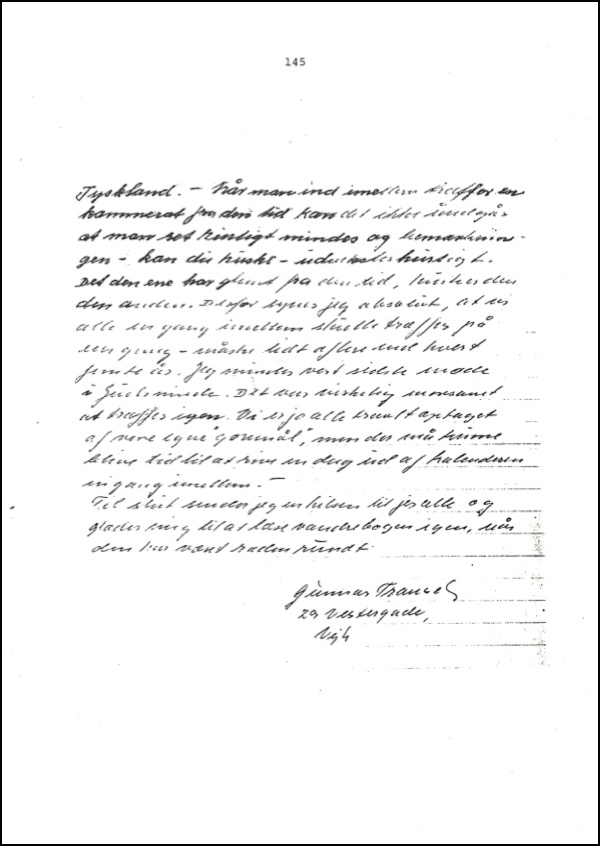 145
Tyskland. – Når man ind imellem træffer en
kammerat fra den tid kan det ikke undgås
at man ret hurtigt mindes og bemærknin-
gen – kan du huske – udveksles hurtigt.
Det den ene har glemt fra den tid, husker den
den anden. Derfor synes jeg absolut, at vi
alle en gang imellem skulle træffes på
en gang – måske lidt oftere end hvert
femte år. Jeg mindes vort sidste møde
i Gudsminde. Det var virkelig morsomt
at træffes igen. Vi er jo alle travlt optaget
af vore egne "gøremål", men der må kunne
blive tid til at rive en dag ud af kalenderen
en gang imellem. –
Til slut sender jeg en hilsen til jer alle og
glæder mig til at læse vandrebogen igen, når
den har været raden rundt.
Gunnar
29 Vestergade,
Vejle